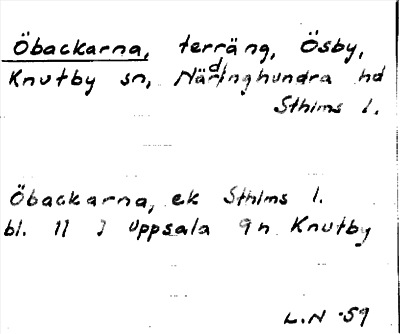 Öbackarna, terräng, Ösby,
Knutby sn, Närdinghundra hd
Sthlms l.
Öbackarna, ek Sthlms l.
bl. 11 J Uppsala 9n Knutby
L.N -59